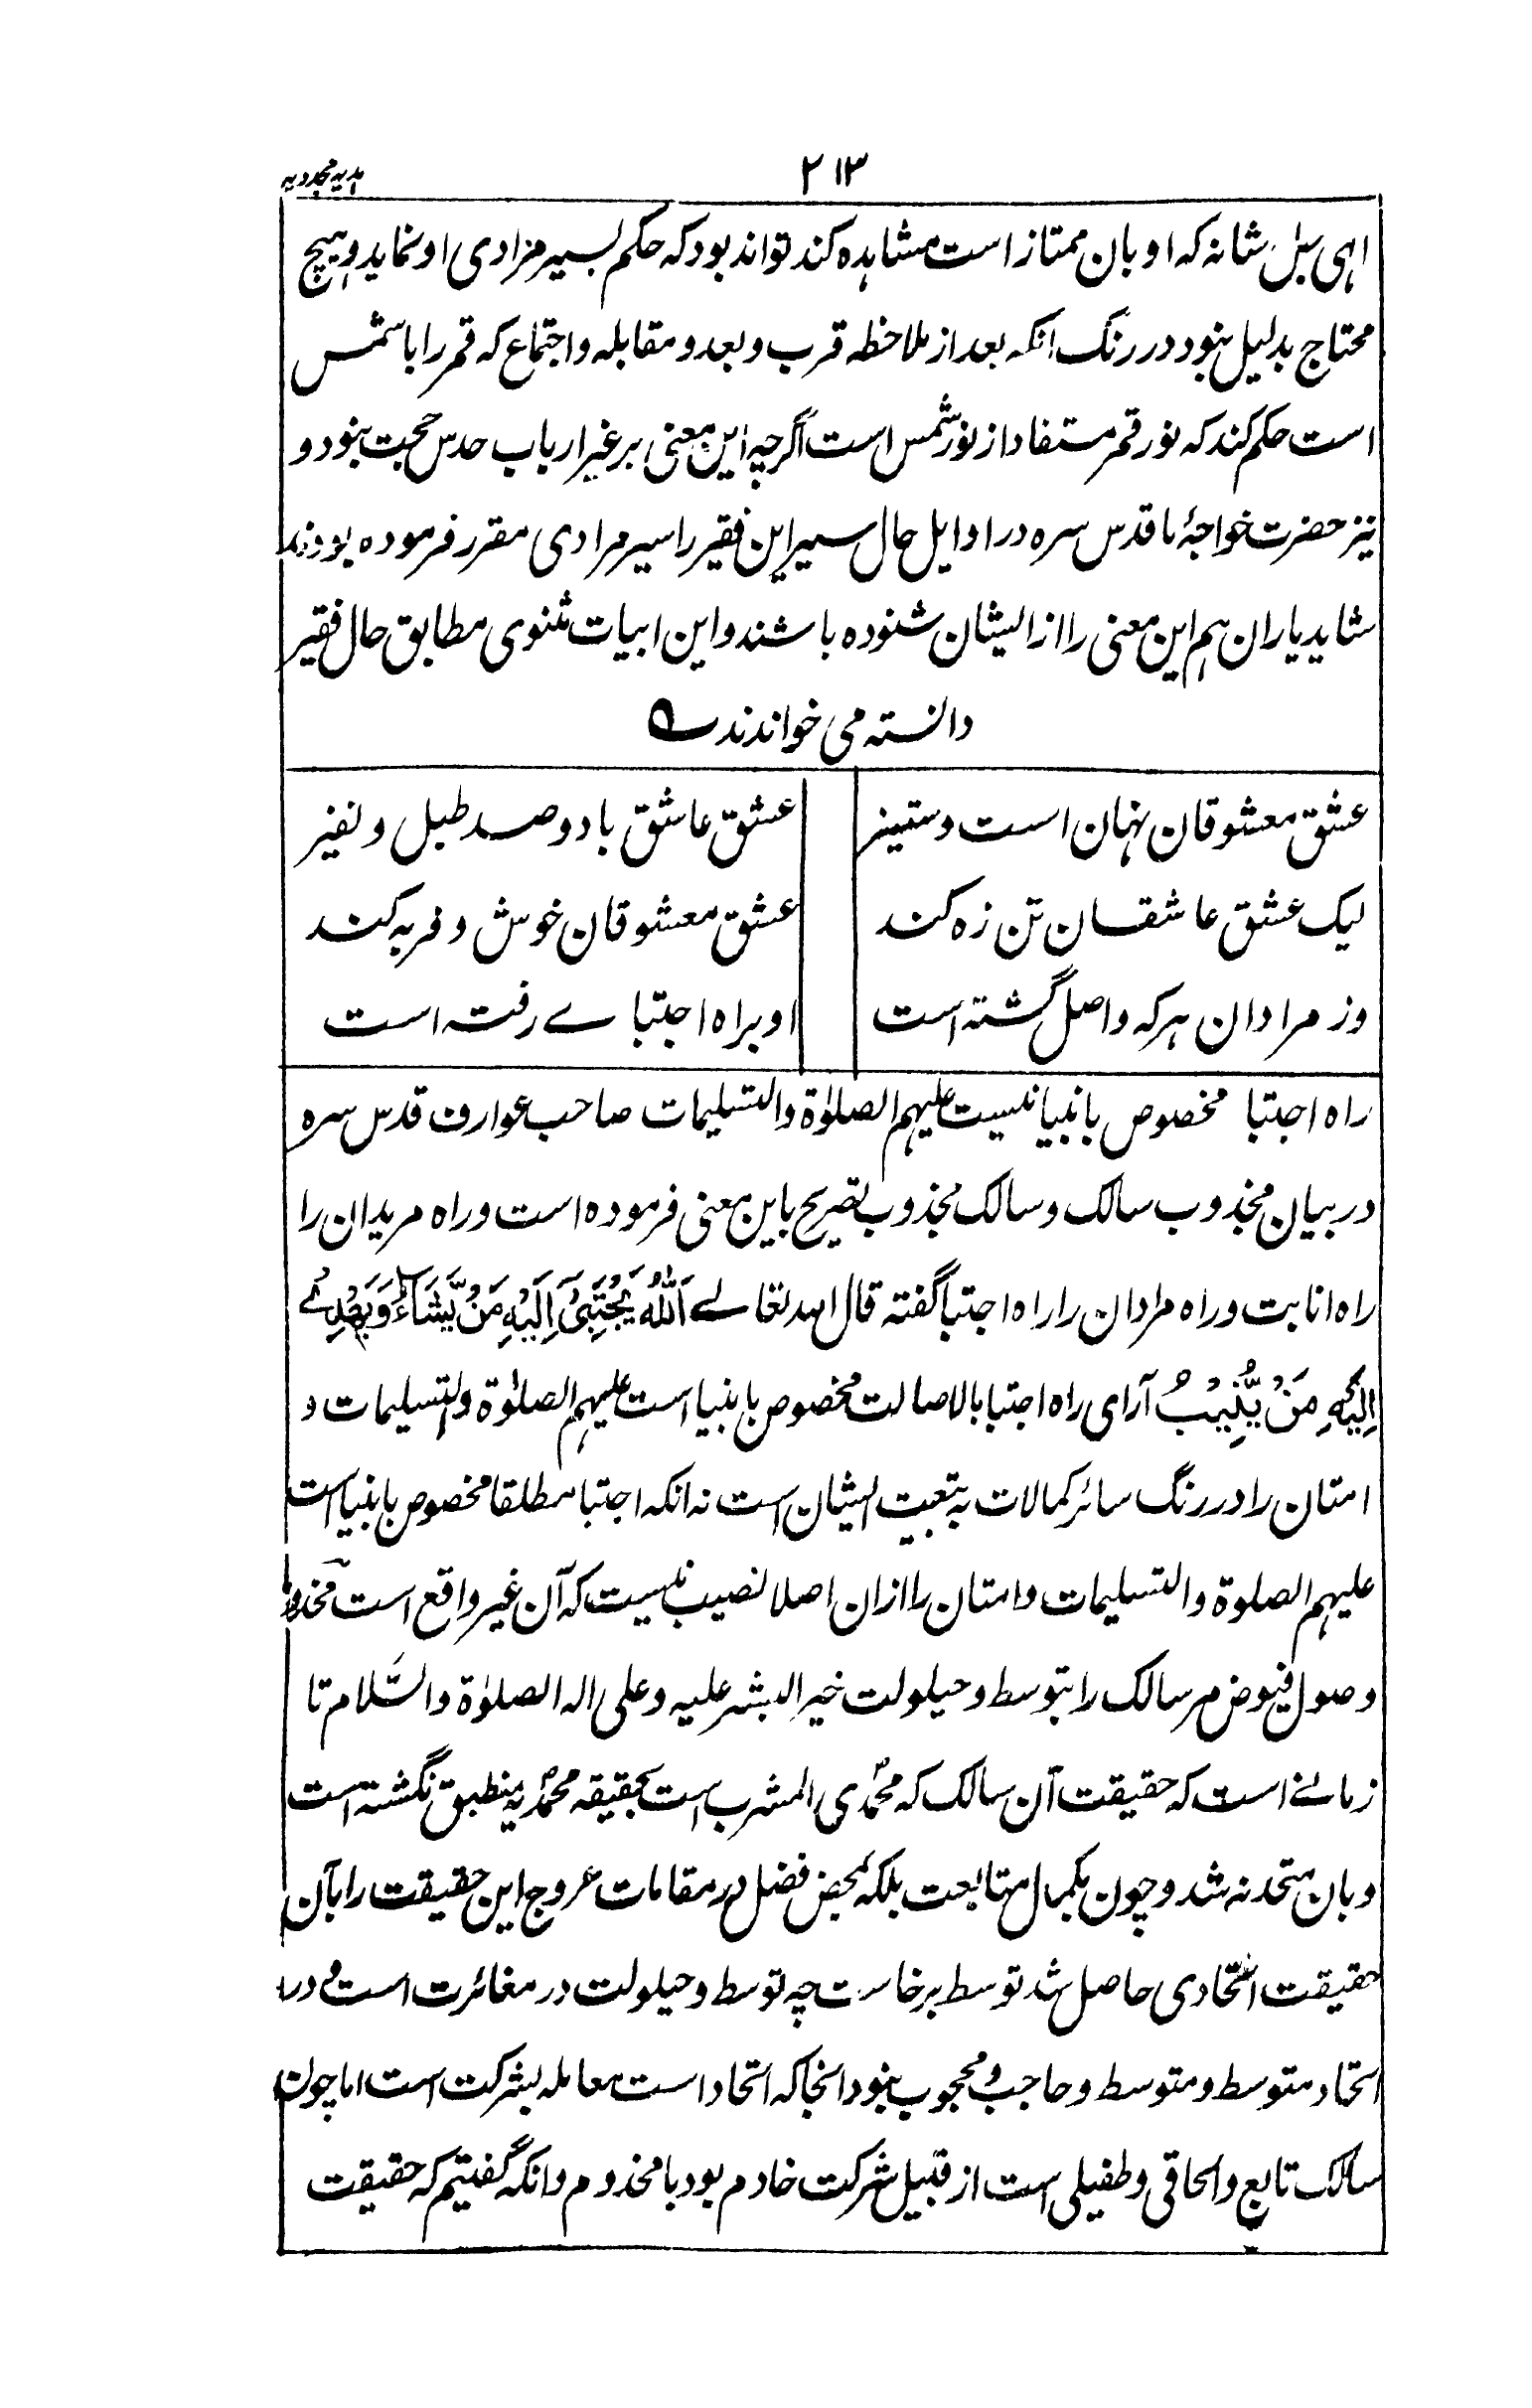 ۲۱۳
ہدیہ مجددیہ
الٰہی جل شانہ کہ او بان ممتاز است مشاہدہ کند تواند بود کہ حکم بسیر مرادی او نماید و ہیچ
محتاج بدلیل نبود در رنگ انکہ بعد از ملاحظہ قرب و بعد و مقابلہ و اجتماع کہ قمر را با شمس
است حکم کند کہ نور قمر مستفاد از نور شمس است اگرچہ این معنی بر غیر ارباب حدس حجت نبود و
نیز حضرت خواجۂ ما قدس سرہ در اوایل حال سیر این فقیر را سیر مرادی مقرر فرمودہ بودند
شاید یاران ہم این معنی را از ایشان شنودہ باشند و این ابیات مثنوی مطابق حال فقیر
دانستہ می خواندند
عشق معشوقان نہان است و ستیر
عشق عاشق با دو صد طبل و نفیر
لیک عشق عاشقان تن زہ کند
عشق معشوقان خوش و فربہ کند
وز مرادان ہر کہ واصل گشتہ است
او براہ اجتبا ے رفتہ است
راہ اجتبا مخصوص بانبیا نیست علیہم الصلوٰۃ والتسلیمات صاحب عوارف قدس سرہ
در بیان مجذوب سالک و سالک مجذوب تصریح باین معنی فرمودہ است و راہ مریدان را
راہ انابت و راہ مرادان را راہ اجتبا گفتہ قال اللہ تعالے اَللّٰهُ یَجْتَبِیْٓ اِلَیْهِ مَنْ یَّشَآءُ وَیَهْدِیْٓ
اِلَیْهِ مَنْ یُّنِیْبُ آرای راہ اجتبا بالاصالت مخصوص بانبیا است علیہم الصلوٰۃ والتسلیمات و
امتان را در رنگ سائر کمالات بہ تبعیت ایشان است نہ انکہ اجتبا مطلقا مخصوص بانبیا است
علیہم الصلوۃ والتسلیمات و امتان را ازان اصلا نصیب نیست کہ آن غیر واقع است مخدوما
وصول فیوض مر سالک را بتوسط و حیلولت خیر البشر علیہ و علی الہ الصلوٰۃ والسَّلام تا
زمانے است کہ حقیقت آن سالک کہ محمدی المشرب است بحقیقہ محمدیہ منطبق نگشتہ است
و بان متحد نہ شد و چون بکمال متابعت بلکہ بمحض فضل در مقامات عروج این حقیقت را بآن
حقیقت اتحادی حاصل شد توسط برخاست چہ توسط و حیلولت در مغائرت است و در
اتحاد متوسط و متوسط و حاجب و محجوب نبود انجا کہ اتحاد است معاملہ بشرکت است اما چون
سالک تابع و الحاقی و طفیلی است از قبیل شرکت خادم بود با مخدوم و انکہ گفتیم کہ حقیقت